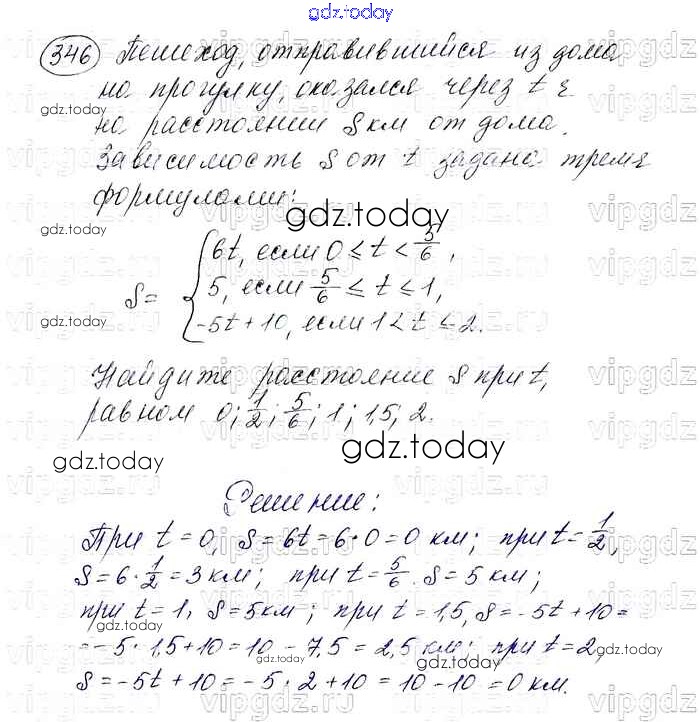 gdz.today
346 Пешеход, отправившийся из дома
на прогулку, оказался через t ч
gdz.today
на расстоянии S км от дома.
Зависимость S от t задана тремя
формулами:
gdz.today
gdz.today
S = { 6t, если 0 ≤ t < 5/6,
5, если 5/6 ≤ t ≤ 1,
-5t + 10, если 1 < t ≤ 2.
gdz.today
gdz.today
Найдите расстояние S при t,
равном 0; 1/2; 5/6; 1; 1,5; 2.
gdz.today
gdz.today
Решение:
При t = 0, S = 6t = 6·0 = 0 км; при t = 1/2,
S = 6·1/2 = 3 км; при t = 5/6 S = 5 км;
при t = 1, S = 5 км; при t = 1,5, S = -5t + 10 =
= -5·1,5 + 10 = 10 - 7,5 = 2,5 км; при t = 2,
gdz.today
gdz.today
gdz.today
S = -5t + 10 = -5·2 + 10 = 10 - 10 = 0 км.
vipgdz